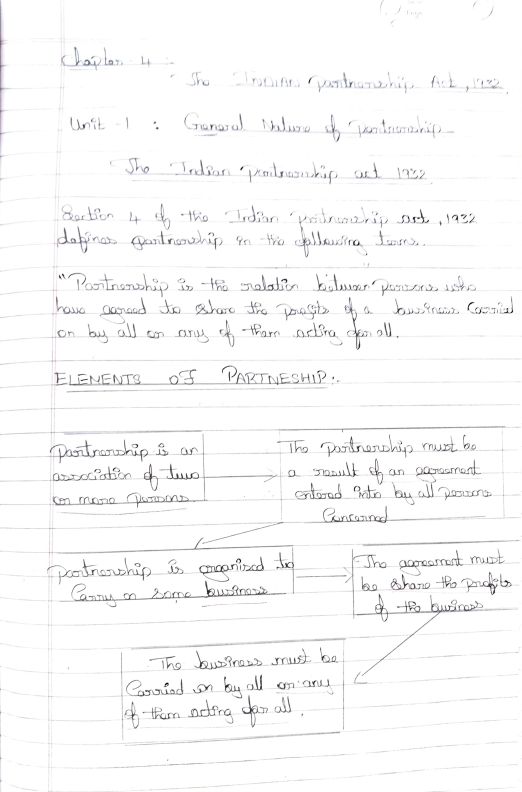 Chapter 4 :-
The INDIAN partnership Act, 1932.
Unit -1 : General Nature of partnership
The Indian partnership act 1932.
Section 4 of the Indian partnership act, 1932
defines partnership in the following terms.
"Partnership is the relation between persons who
have agreed to share the profits of a business carried
on by all or any of them acting for all.
ELEMENTS OF PARTNESHIP:.
Partnership is an
association of two
or more persons
The partnership must be
a result of an agreement
entered into by all persons
Concerned
partnership is organised to
Carry on some business
The agreement must
be share the profits
of the business
The business must be
Carried on by all or any
of them acting for all.